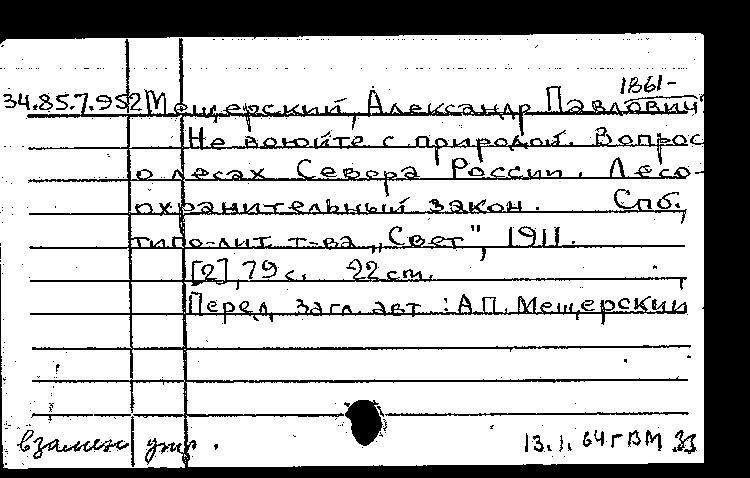 1861-
34.85.7.952 Мещерский, Александр Павлович
Не воюйте с природой. Вопрос
о лесах Севера России. Лесо-
охранительный закон. Спб.,
типо-лит. т-ва „Свет", 1911.
[2], 79 с. 22 cm.
Перед загл. авт.: А.П. Мещерский
взамен утр.
13.1.64 ГВМ 33